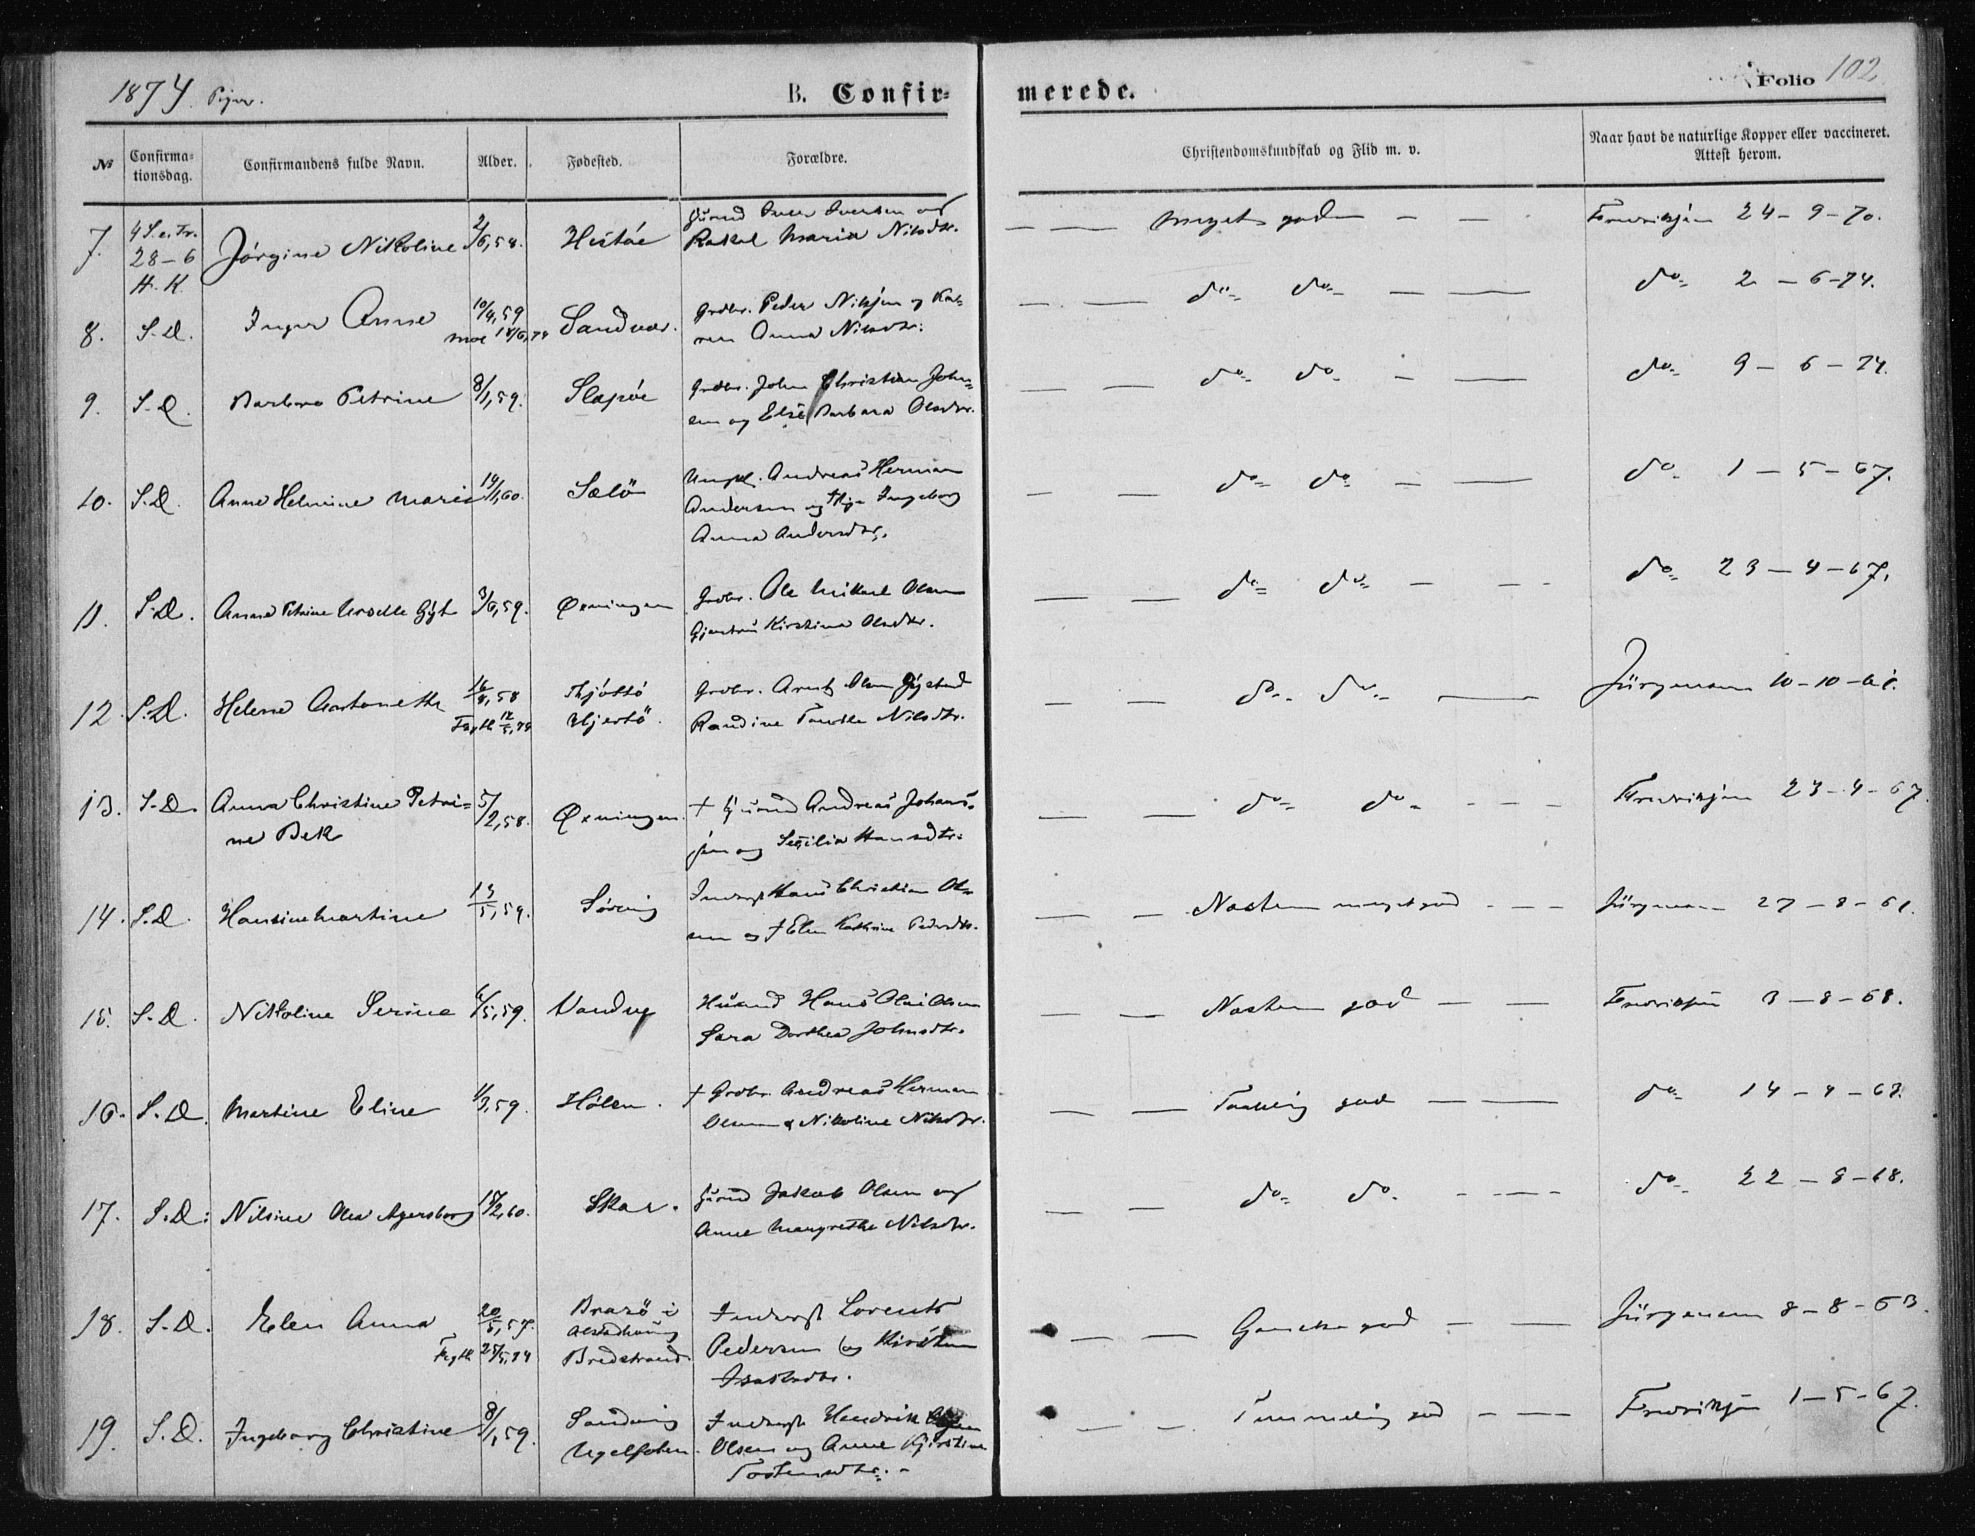 1874 Piger.
B. Confir=
merede.
Folio 102
No
Confirma=
tionsdag.
Confirmandens fulde Navn.
Alder.
Fødested.
Forældre.
Christendomskundskab og Flid m. v.
Naar havt de naturlige Kopper eller vaccineret.
Attest herom.
7. 4 S. e. Tr. 28-6 H. K. Jørgine Nikoline 2/6,58 Histøe
Iver Iversen og
Rakel Maria Nilsdtr.
meget god Fredriksen 24-9-70.
8. S.D. Inger Anne 10/4,59 Sandvær.
Grdbr. Peder Nilsen og Ka-
ren Anna Nilsdtr.
do do do 2-6-74.
9. S.D. Barbro Petrine 8/1,59. Slapøe
Grdbr. John Christian John-
sen og Else Barbara Olsdtr.
do do do 9-6-74.
10. S.D. Anne Helmine Marie 19/1,60. Sælö
Ungkl. Andreas Herman
Andersen og Pige Ingeborg
Anna Andersdtr.
do do do 1-5-67.
11. S.D. Anne Petrine 3/6,59. Øxningen
Grdbr. Ole Mikal Olsen
Kirstina Olsdtr.
do do do 23-4-67.
12. S.D. Helene Antonette 16/4,58 Thjøttö
Hjertö.
Grdbr. Arnt Olsen
Randine Nilsdtr.
do do Jürgensen 10-10-61.
13. S.D. Anna Christine Petri=
ne Bek
5/2,58. Øxningen.
+ Andreas Johan-
sen og Sesilia Hansdtr.
do do Fredriksen 23-4-67.
14. S.D. Hansine Martine 13/5,59. Søvig
Inderst Hans Christian Ol-
sen og + Elen Kathrine Pedersdtr.
Næsten meget god Jürgensen 27-8-61.
15. S.D. Nikoline Serine 6/5,59. Vandve
Husmd Hans Olai Olsen
Sara Dorthea Johnsdtr.
Næsten god Fredriksen 3-8-68.
16. S.D. Martine Eline Hølen.
+ Grdbr. Andreas Herman
Olsen & Nikoline Nilsdtr.
Taalelig god do
17. S.D. Nilsine Olea Agersborg 18/2,60.
Jakob Olsen og
Anne Margrethe Nilsdtr.
do do do 22-8-68.
18. S.D. Elen Anna 20/5,57. Brasö i
Alstadhaug
Bredstrand
Inderst Lorents
Pedersen og Kirsten
Isaksdtr.
Ganske god Jürgensen 8-8-63.
19. S.D. Ingeborg Christine 8/1,59. Sandvig
Inderst Hendrik
Olsen og Anne Kjirstine
Tostensdtr.
Temmelig god Fredriksen 1-5-67.